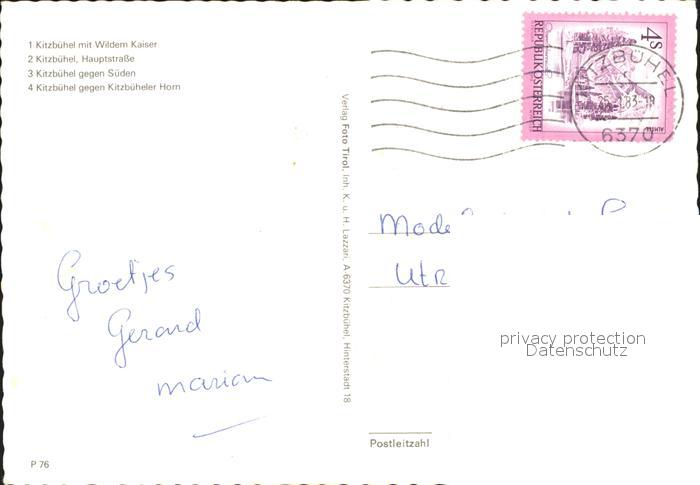 1 Kitzbühel mit Wildem Kaiser
2 Kitzbühel, Hauptstraße
3 Kitzbühel gegen Süden
4 Kitzbühel gegen Kitzbüheler Horn
Groetjes
Gerard
marian
P 76
Verlag Foto Tirol, Inh. K. u. H. Lazzari, A-6370 Kitzbühel, Hinterstadt 18
4S
REPUBLIK ÖSTERREICH
KITZBÜHEL
6370
Mode
Utr
privacy protection
Datenschutz
Postleitzahl